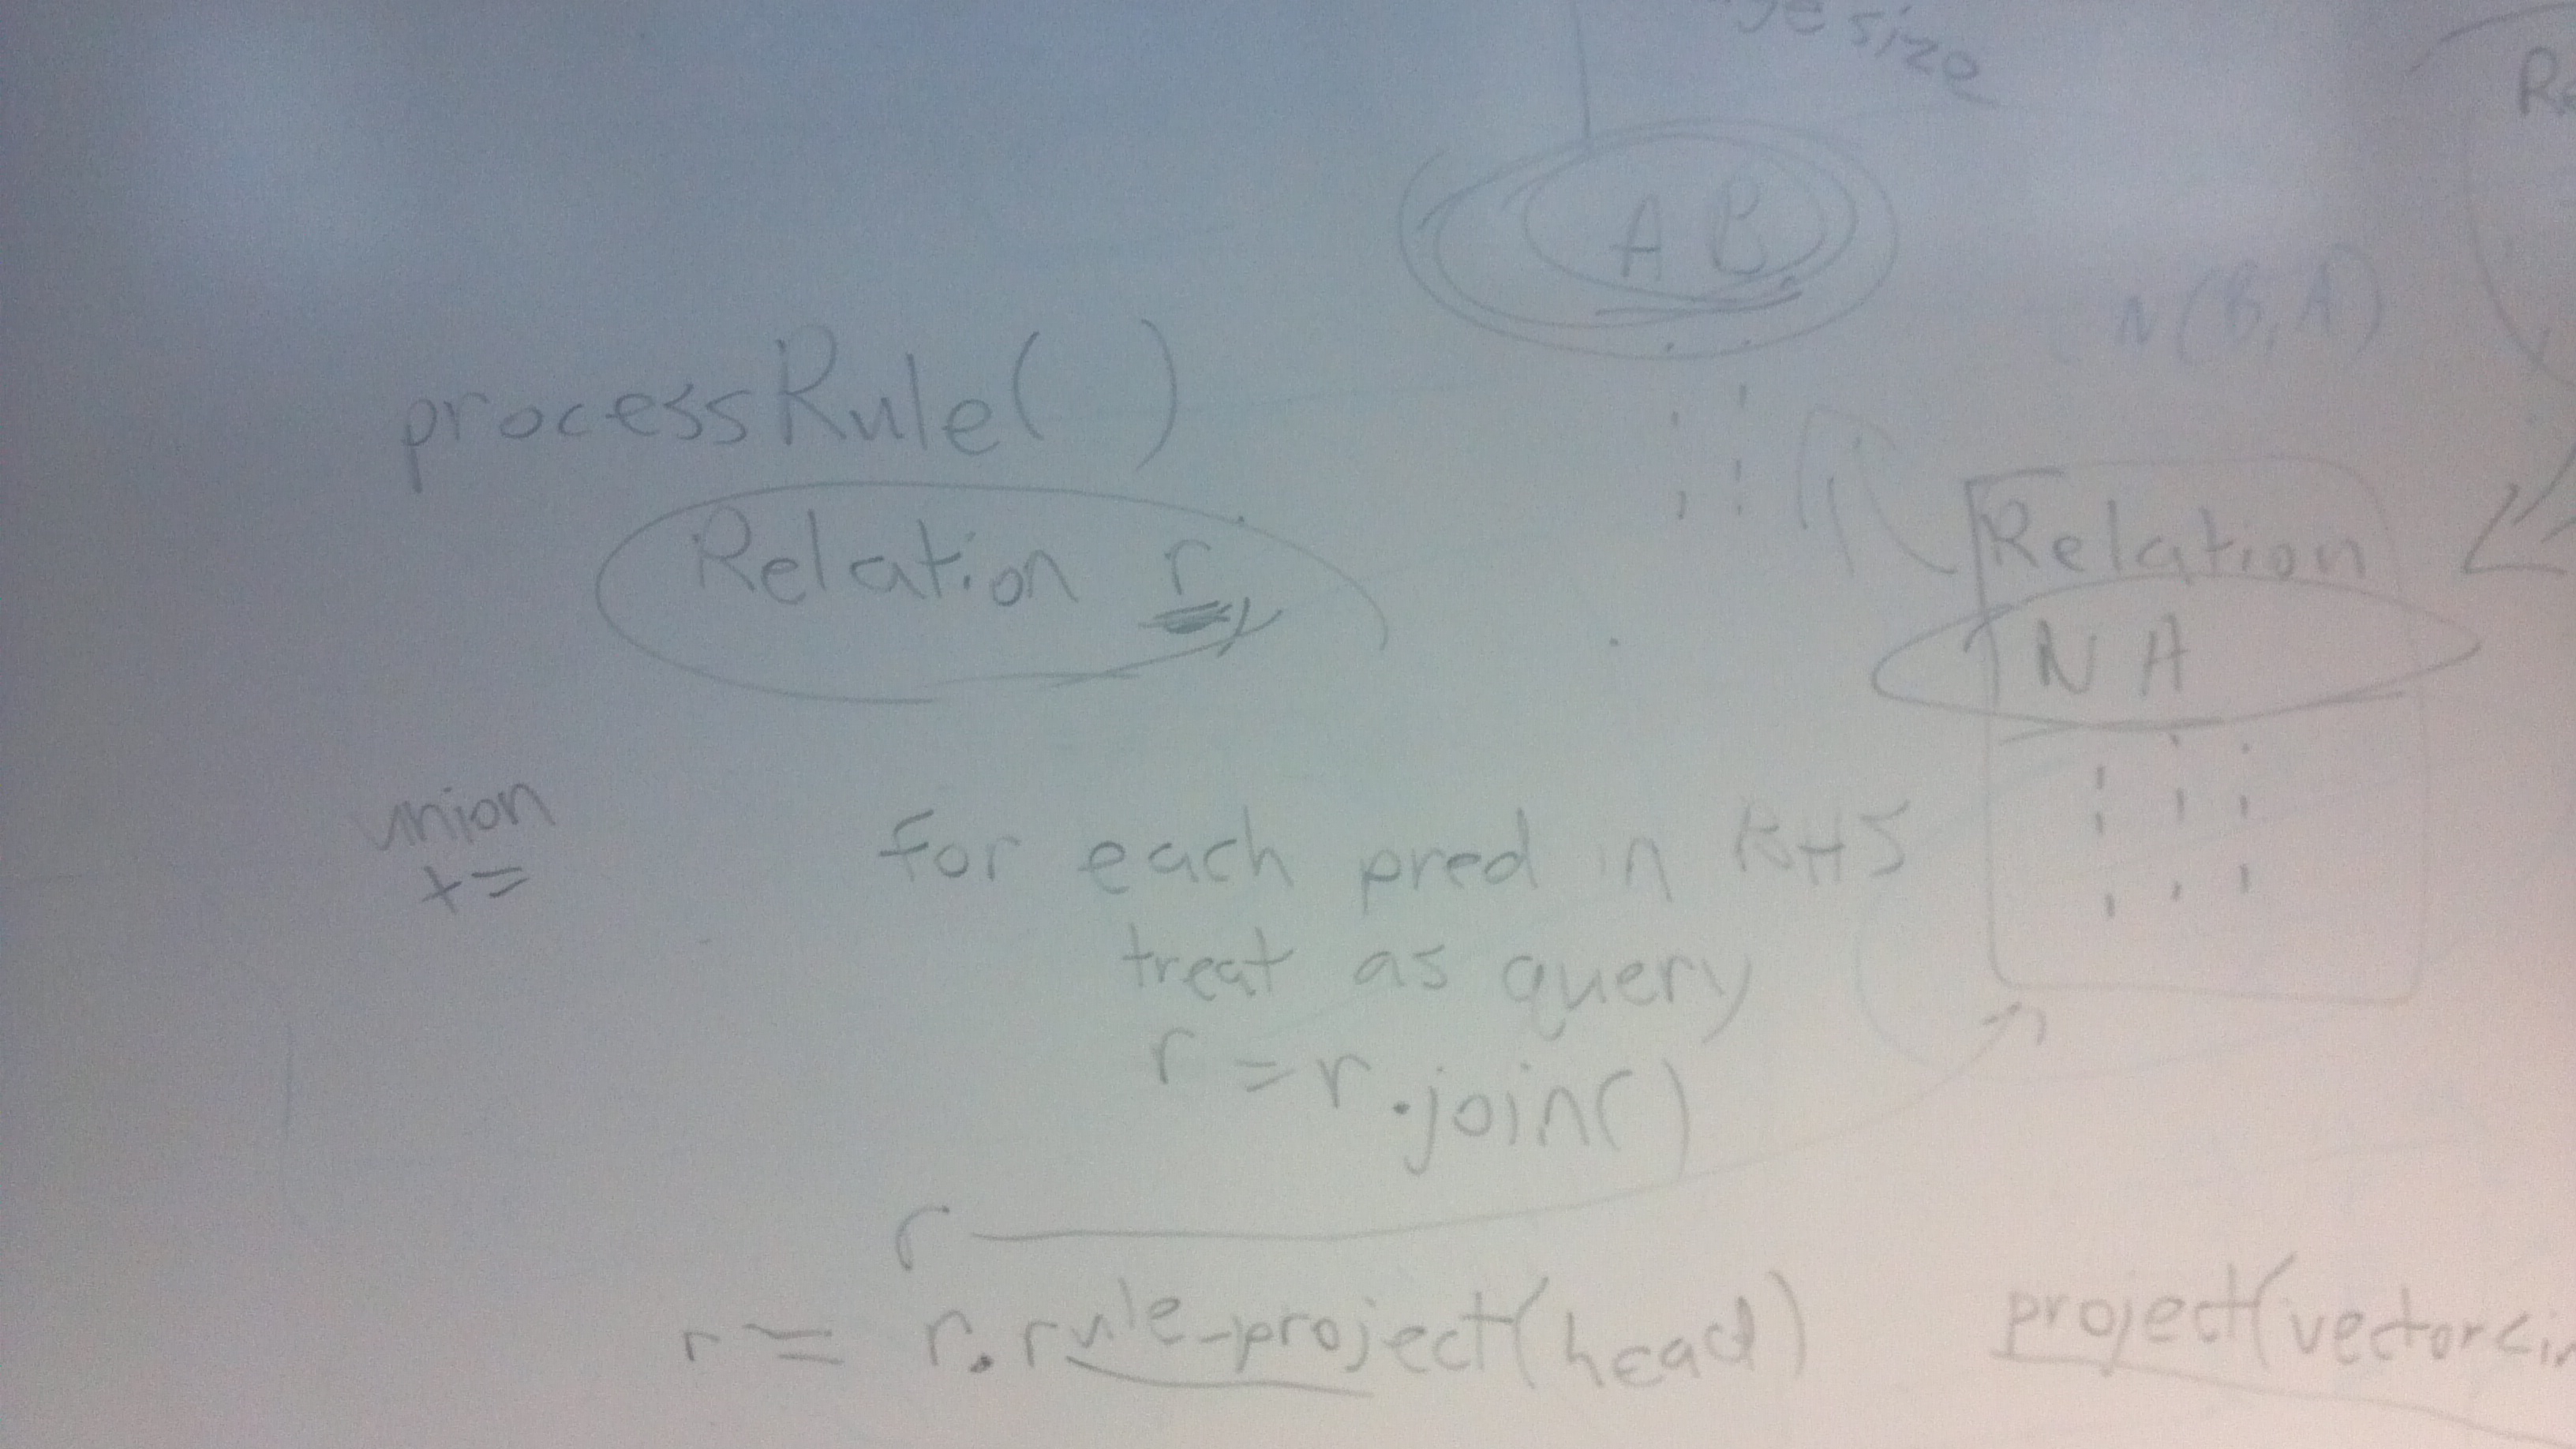 size
A B
N(B,A)
processRule( )
Relation r
Relation
N A
union
+=
for each pred in RHS
treat as query
r = r.join()
r
r = r.rule-project(head)
project(vector<in